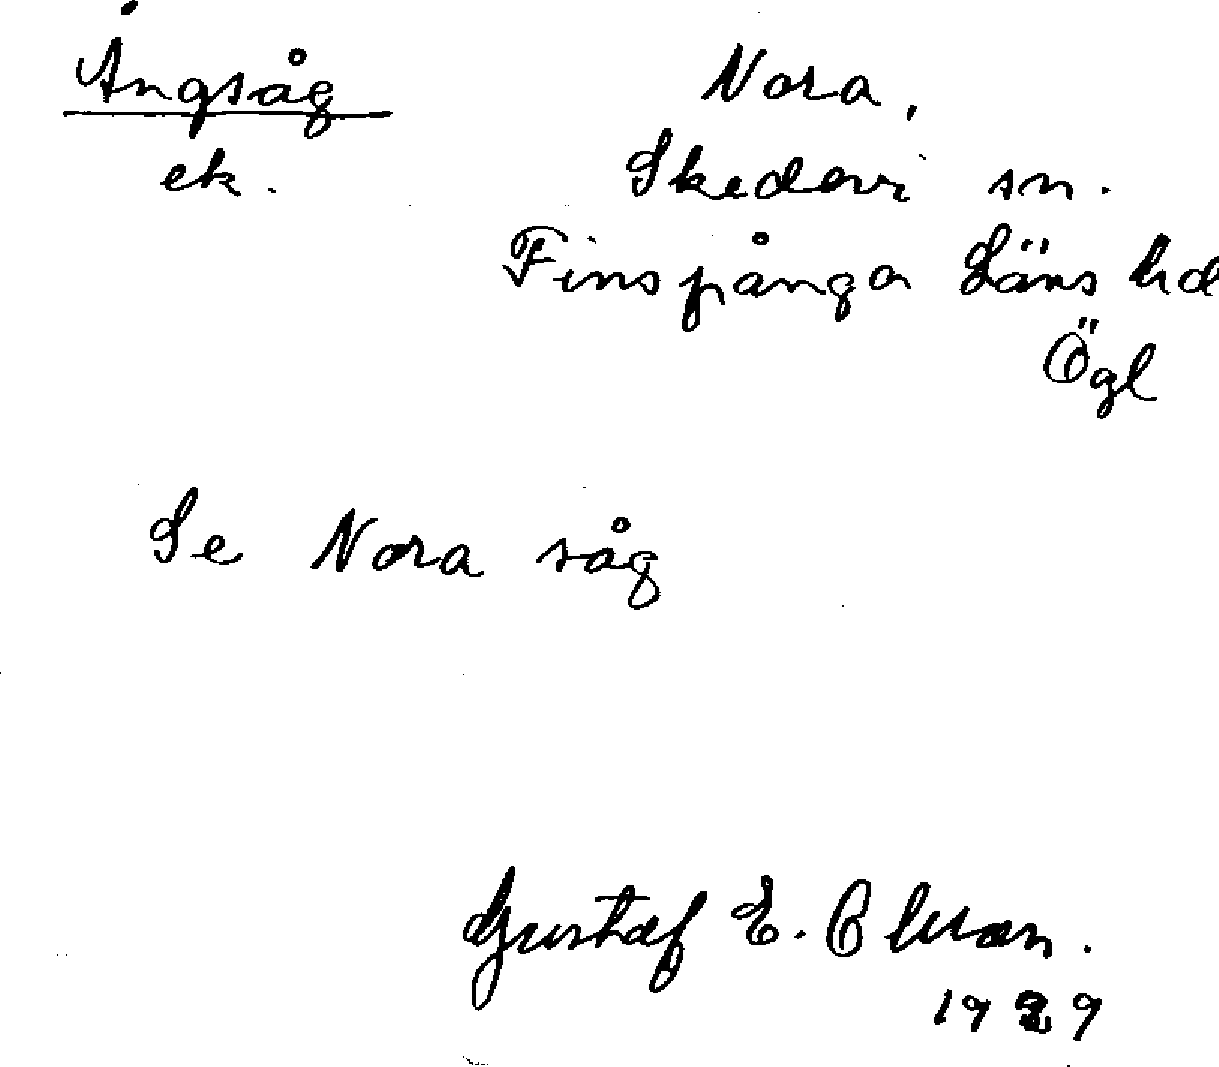 Ångsåg
ek.
Nora,
Skedevi sn.
Finspånga Läns hd
Ögl
Se Nora såg
Gustaf E. Olsson.
1929